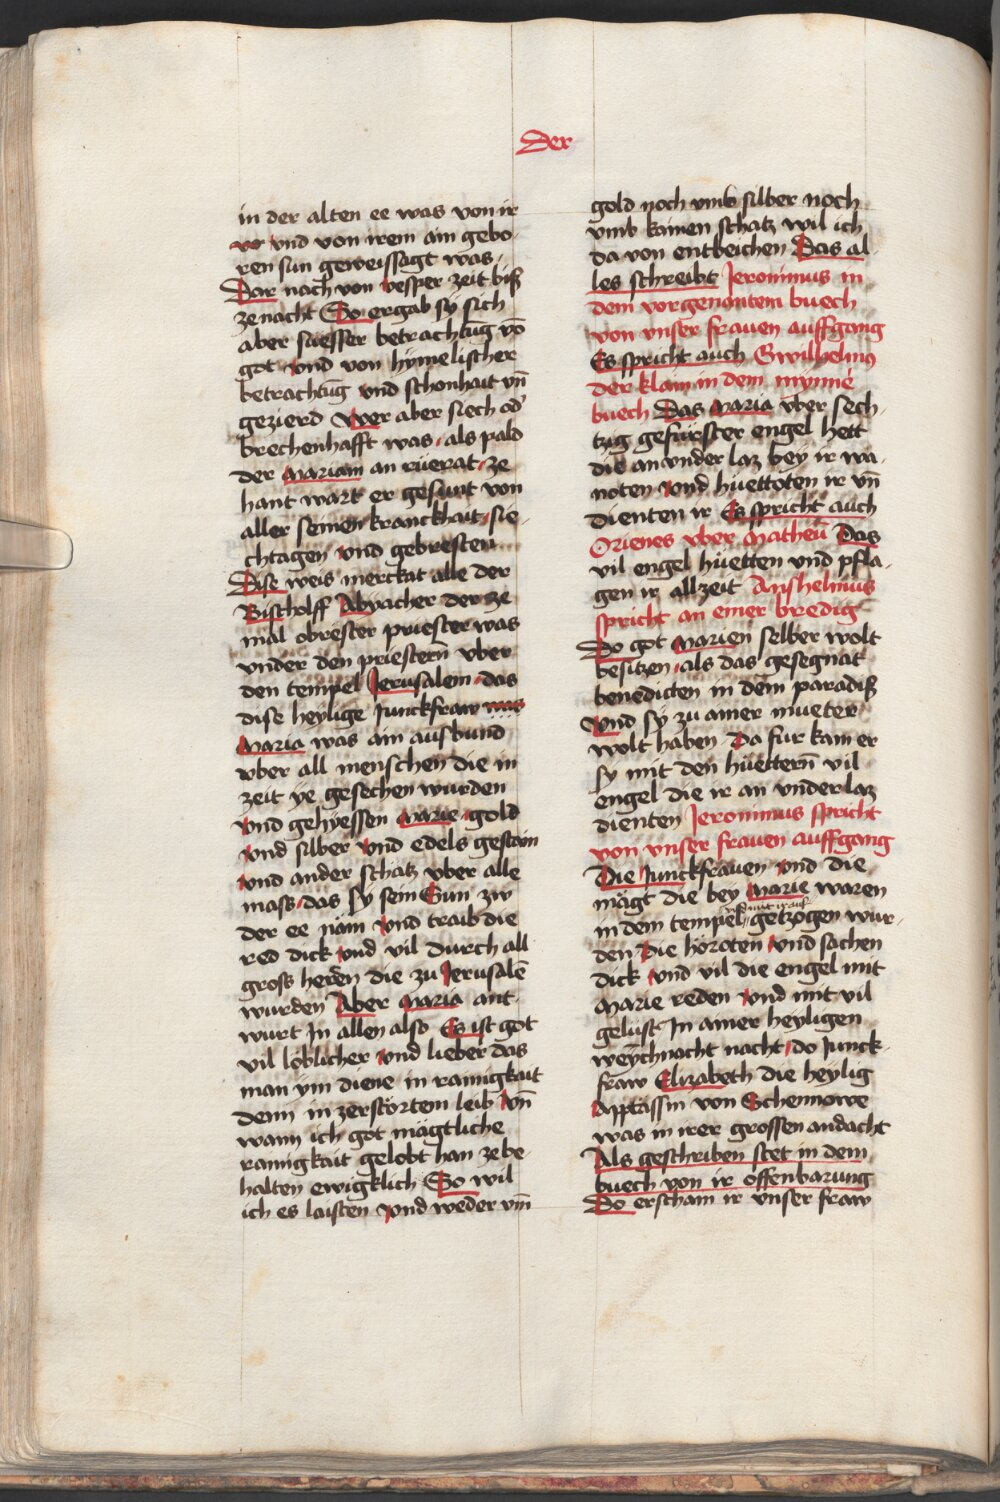 Der
in der alten ee was von ir
vnd von irem ain gebo-
ren sun geweissagt was.
Dar nach von vesper zeit biß
ze nacht So ergab sy sich
aber süesser betrachtūg vō
got vnd von hymelischer
betrachtūg vnd schonhait vn̄
gezierd Wer aber siech od'
brechenhafft was, als pald
der Mariam an rüerat, ze
hant wart er gesunt von
aller seinen kranckhait, sie-
chtagen vnd gebresten
Dise weis merckat alle der
Bischolff Abyacher der ze
mal obrester priester was
vnder den priestern̄ vber
den tempel Jerusalem, das
dise heylige Junckfraw was
Maria was ain ausbund
vber all menschen die in
zeit ye gesechen wurden
vnd gehyessen Marie, gold
vnd silber vnd edels gestain
vnd ander schatz vber alle
mass, das sy sein Sun zw
der ee näm vnd traib die
red dick vnd vil durch all
gross herren die zu Jerusalē
wurden Aber Maria ant-
wurt In allen also Es ist got
vil löblicher vnd lieber das
man ym diene in rainigkait
denn in zerstörtem leib vn̄
wann ich got mägtliche
rainigkait gelobt han ze be-
halten ewigklich So wil
ich es laisten vnd weder vm̄
gold noch vmb silber noch
vmb kainen schatz wil ich
da von entbeichen Das al-
les schreibt Jeronimus in
dem vorgenantem buech
von vnser frauen auffgang
Es spricht auch Gwilhelmꝰ
der klain in dem mynne
buech Das Maria vber sech-
tzig gefürster engel hett
die an vnder laz bey ir wa-
noten vnd hüettoten ir vn̄
dienten ir Es spricht auch
Orienes vber Matheū Das
vil engel hüetten vnd pfla-
gen ir allzeit Anshelmus
spricht an einer bredig
Do got Marien selber wolt
besitzen, als das gesegnat
benedicten in dem paradiß
Vnd sy zu ainer mueter
wolt haben Da fur kam er
sy mit den hüettern̄ vil
engel die ir an vnderlaz
dienten Jeronimus spricht
von vnser frauen auffgang
Die Junckfrauen vnd die
mägt die bey Marie waren
in dem tempel getzogen wur-
den Die höroten vnd sachen
dick vnd vil die engel mit
Marie reden vnd mit vil
gelust In ainer heyligen
weychnacht nacht, do Junck-
fraw Elizabeth die heylig
Apptässin von Schennowe
was in irer grossen andacht
Als geschriben stet in dem
buech von ir offenbarung
Do erscham ir vnser fraw